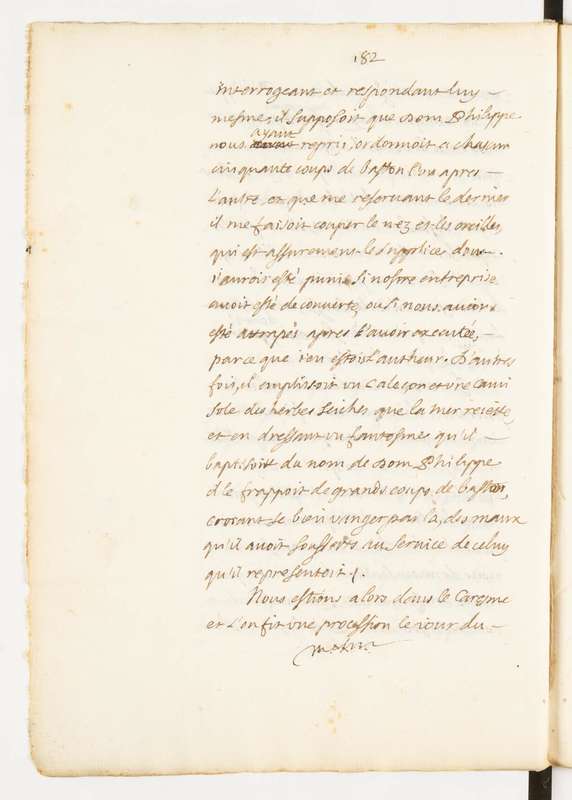 182
interrogeant et respondant luy
mesme, il supposoit que Dom Philippe
ayant
nous repris, ordonnoit a chacun
cinquante coups de baston l'un apres
l'autre, et que me reservant le dernier
il me faisoit couper le nez et les oreilles,
qui est assurement le supplice dont
i'aurois esté puni si nostre entreprise
avoit esté decouverte, ou si nous avions
esté attrapés apres l'avoir executée,
parce que i'en estois l'autheur. D'autres
fois, il emplissoit un caleçon et une cami
sole des herbes seiches que la mer reiette,
et en dressant un fantosme qu'il
baptisoit du nom de Dom Philippe
il le frappoit de grands coups de baston,
croiant se bien vanger par là, des maux
qu'il avoit soufferts au service de celuy
qu'il representoit.
Nous estions alors dans le Caresme
et l'on fit une procession le iour du